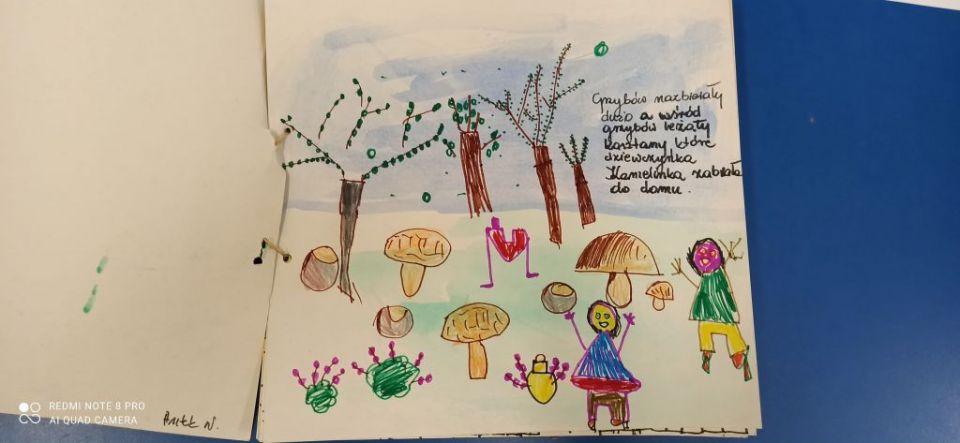 Grzybów nazbierały
dużo a wśród
grzybów leżały
kasztany które
dziewczynka
Kamelinka zabrała
do domu.
REDMI NOTE 8 PRO
AI QUAD CAMERA